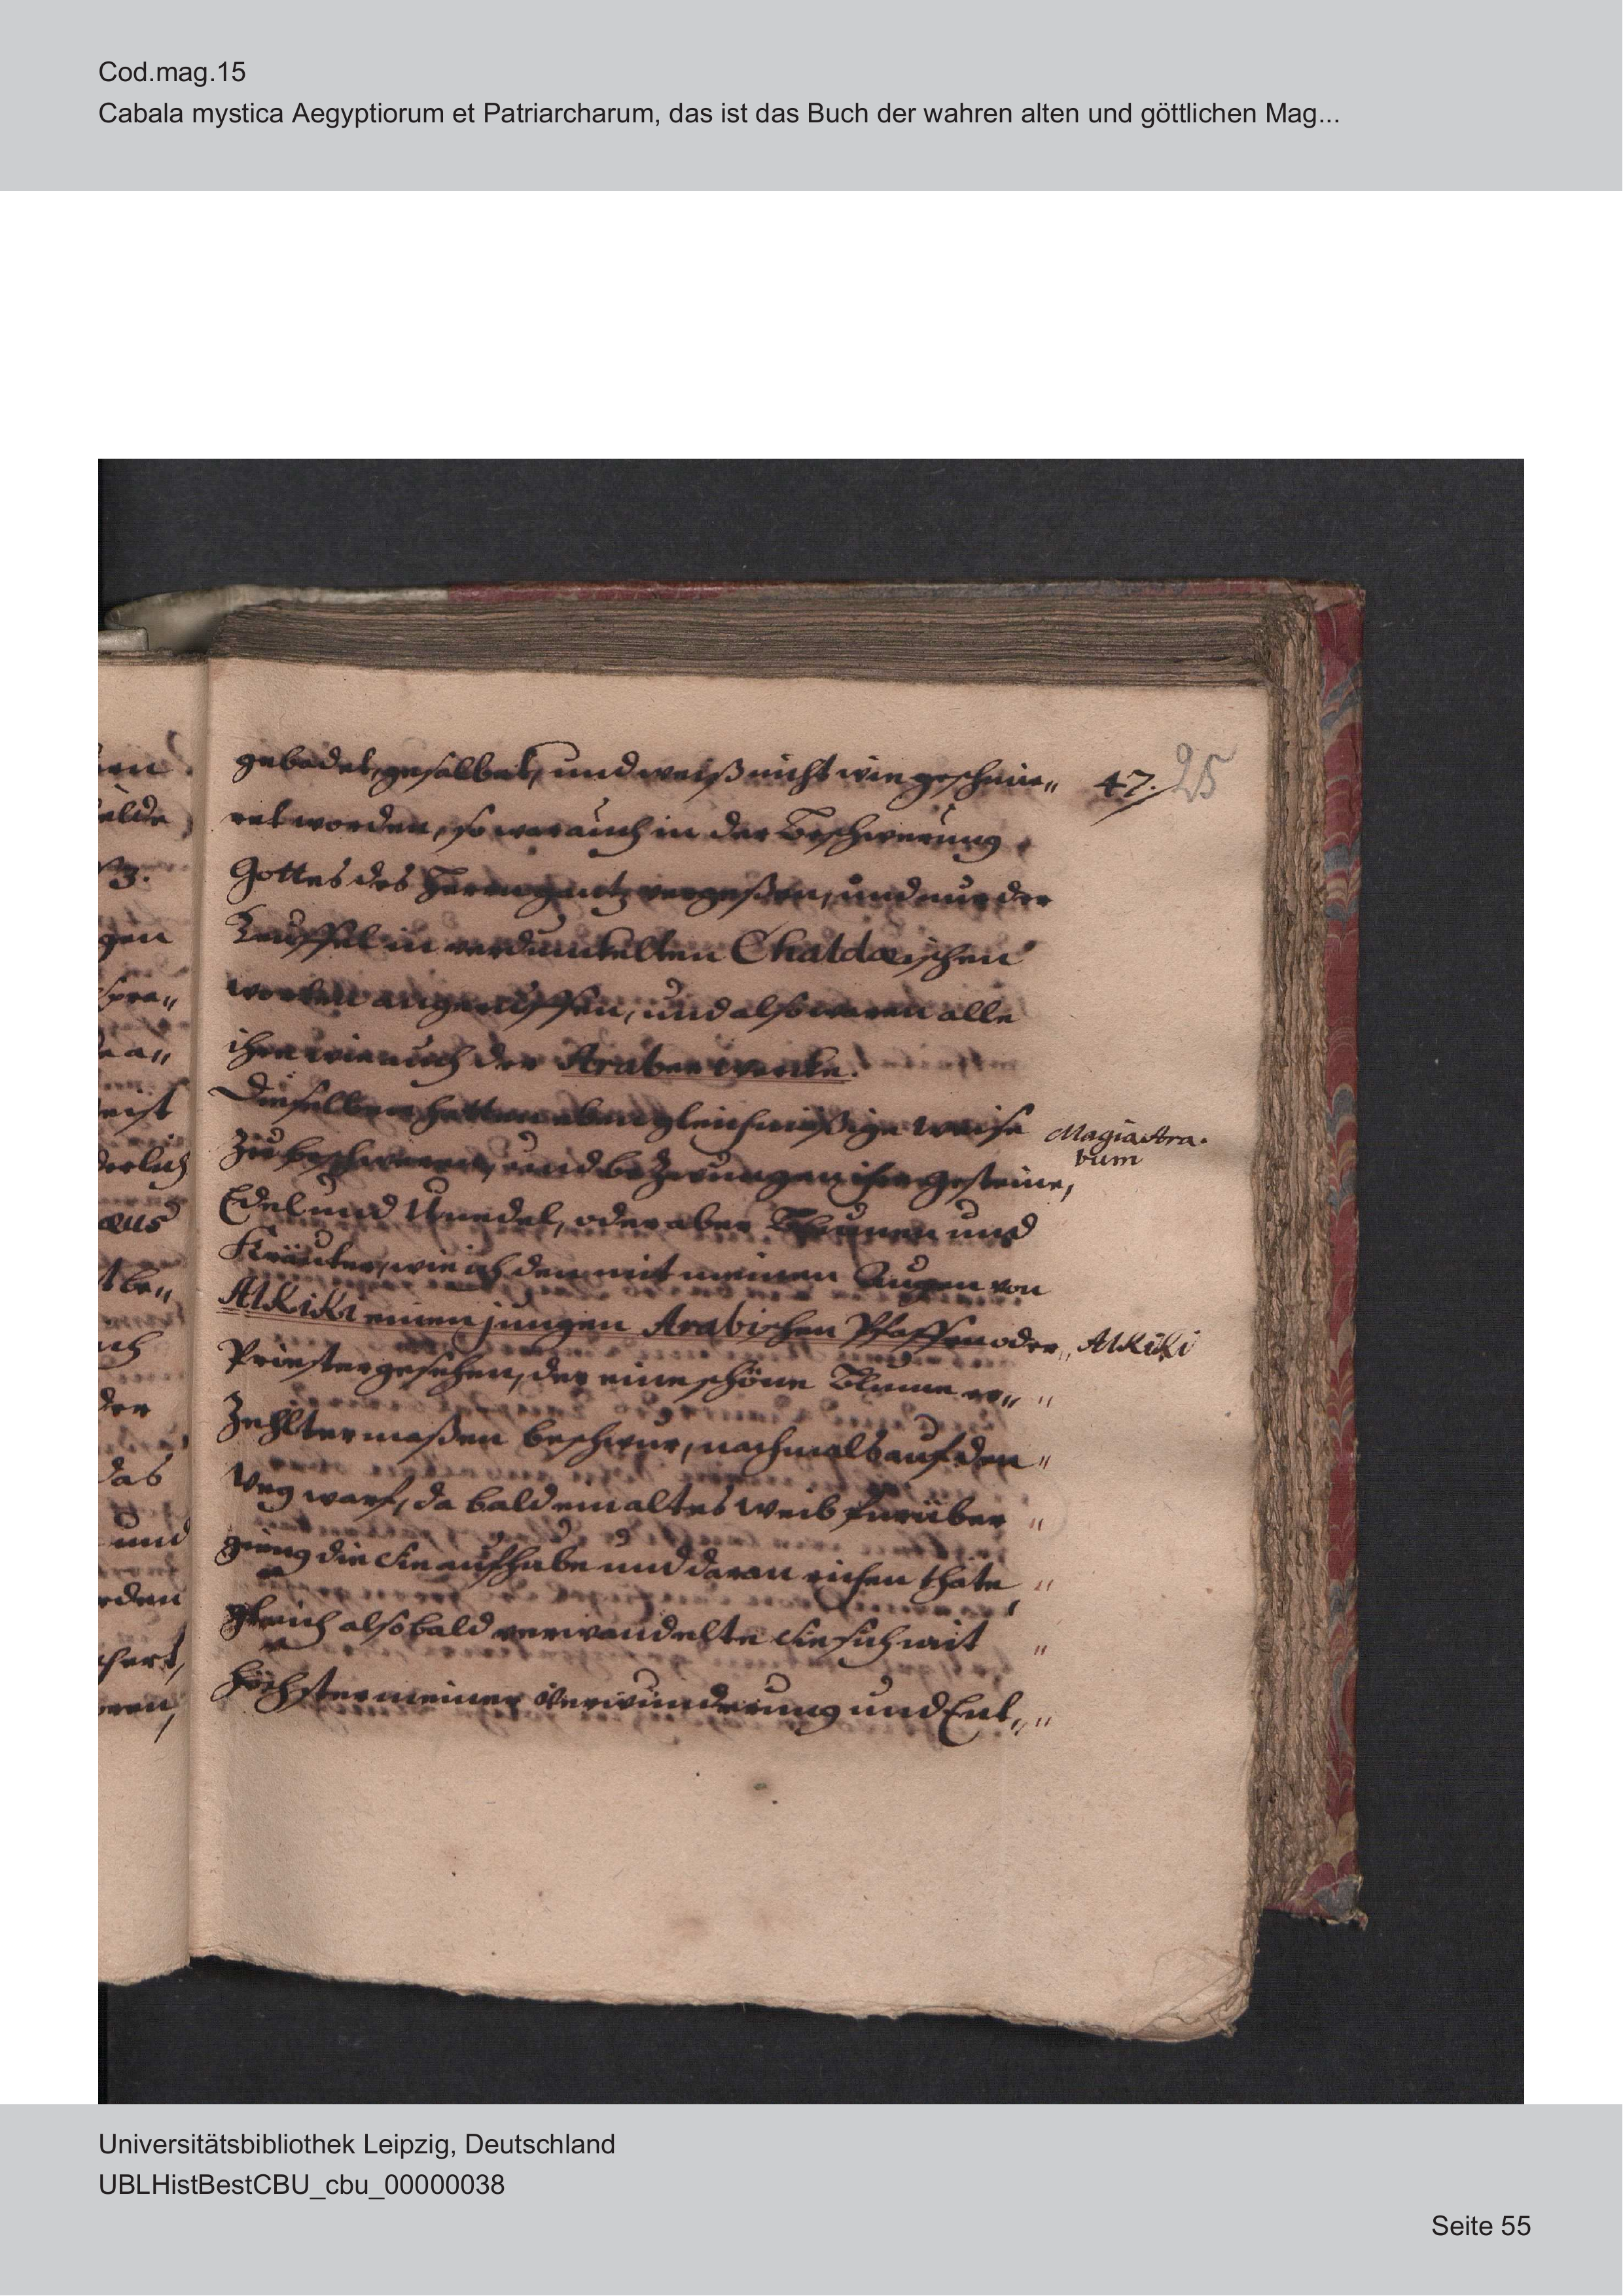 Cod.mag.15
Cabala mystica Aegyptiorum et Patriarcharum, das ist das Buch der wahren alten und göttlichen Mag...
47. 25
gebadet, gesalbet, und weiß nicht wie geschmie„
ret worden, so war auch in der Beschwerung
Gottes des Herrn gantz vergeßen, und nur der
Teuffel in verdunkelten Chaldæischen
worten angeruffen, und also waren alle
ihre wie auch der Araber werke.
Dieselben hatten eben gleichmäßige weise
Magia Ara.
bum
Zu beschweren, und bezwungen ihre gesteine,
Edel und Unedel, oder aber Bluemen und
Kräuter, wie ich den mit meinen Augen von
AlKiKi einen jungen Arabischen Pfaffen oder„ AlKiKi
Priester gesehen, der eine schöne Blume er„ "
Zehltermaßen beschwur, nachmals auf den "
Weg warf, da bald ein altes Weib fürüber "
gieng die sie aufhube und daran richen thäte, "
gleich alsobald verwandelte sie sich mit "
höchster meiner Verwunderung und Ent„ "
hen
gen
spra„
eist
derlich
aus
tbe„
der
das
und
rden
Universitätsbibliothek Leipzig, Deutschland
UBLHistBestCBU_cbu_00000038
Seite 55